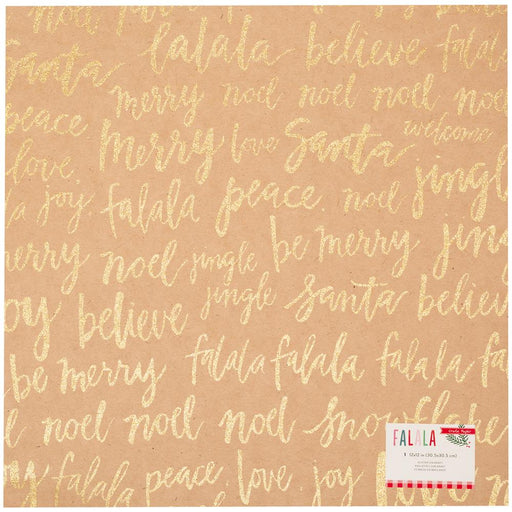 falala believe falala
Santa merry noel noel noel noel
peace merry love Santa welcome
love joy falala peace noel jingle
merry noel jingle be merry jing
jingle
joy believe Santa believe
be merry falala falala falala fa
noel noel noel noel snowflake
falala peace love joy love
crate paper
FALALA
1 12x12 in (30.5x30.5 cm)